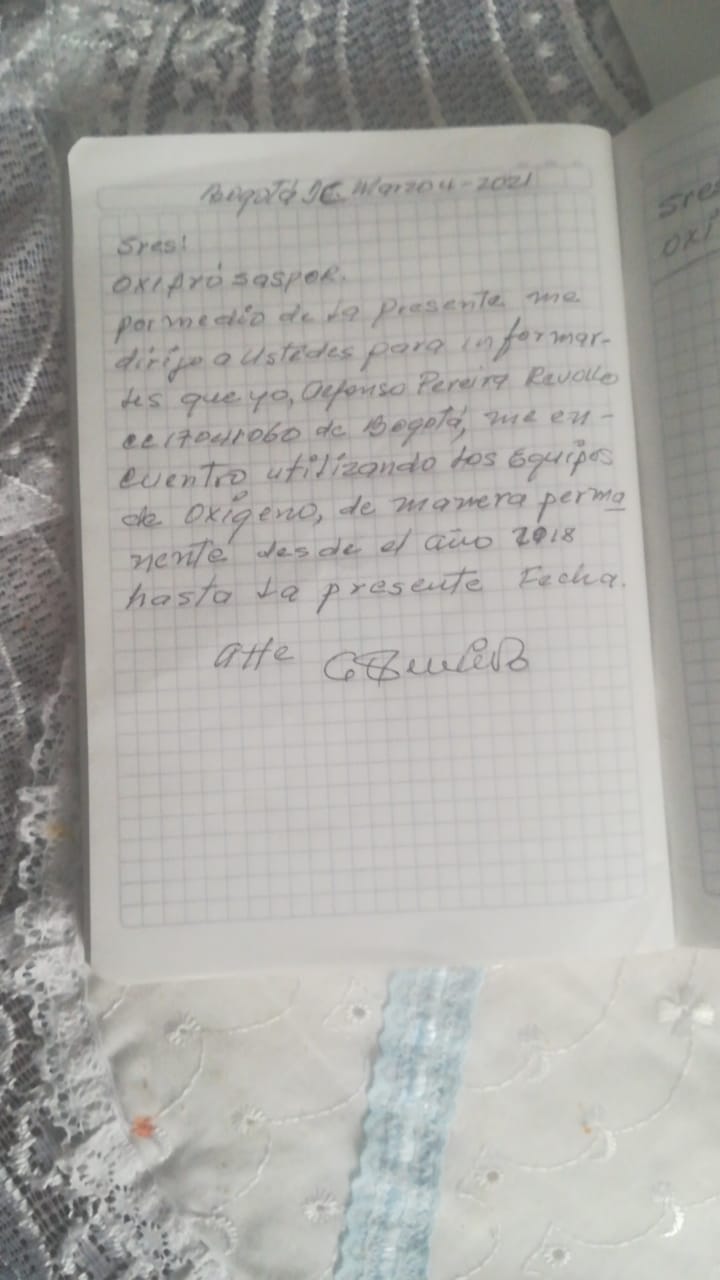 Bogotá DC Marzo 4-2021
Sres!
OXIPRO SAS POR.
por medio de la presente me
dirijo a Ustedes para informar-
les que yo, Alfonso Pereira Revollo
cc 17041060 de Bogotá, me en-
cuentro utilizando los Equipos
de Oxigeno, de manera perma
nente desde el año 2018
hasta la presente Fecha.
Atte
Sres
OXI